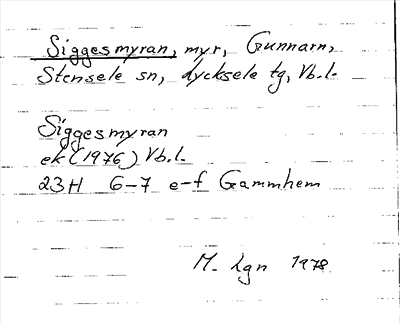 Siggesmyran, myr, Gunnarn,
Stensele sn, Lycksele tg, Vb.l.
Siggesmyran
ek (1976) Vb.l.
23H 6-7 e-f Gammhem
M. Lgn 1978